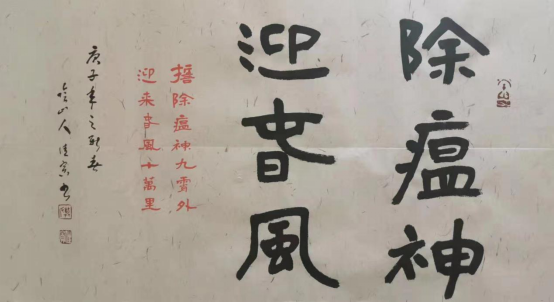 除瘟神
迎春風
除瘟神九霄外
迎来春風千萬里
庚子年之新春
山人